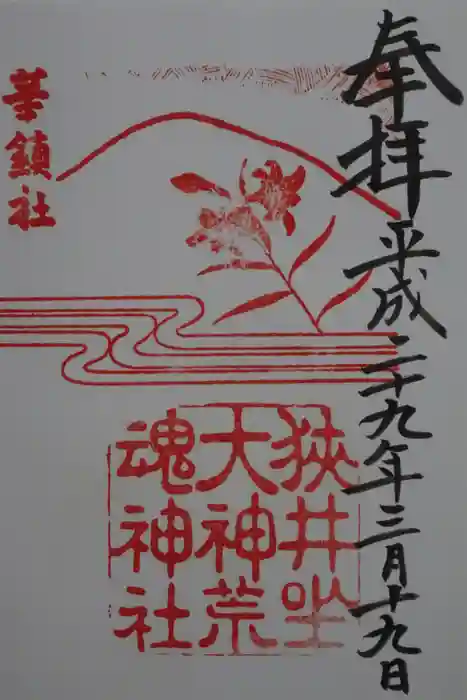 奉拝 平成二十九年三月十九日
華鎮社
狭井坐
大神荒
魂神社